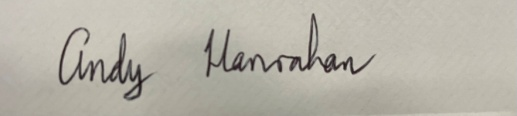 Andy Hanrahan